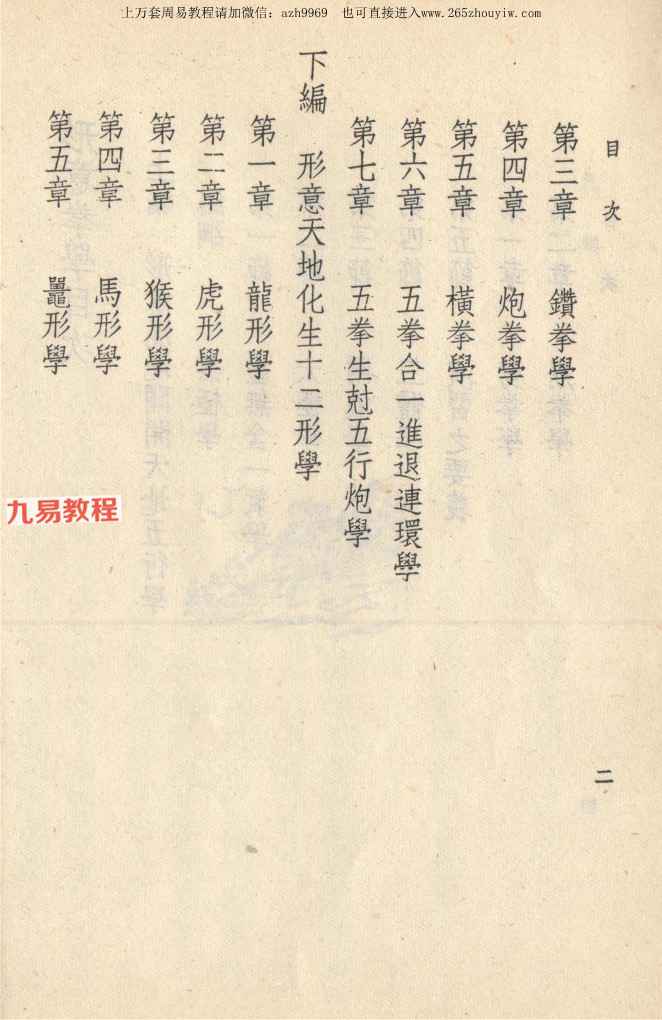 上万套周易教程请加微信：azh9969 也可直接进入www.265zhouyiw.com
目次
第三章 鑽拳學
第四章 炮拳學
第五章 橫拳學
第六章 五拳合一進退連環學
第七章 五拳生尅五行炮學
下編 形意天地化生十二形學
第一章 龍形學
第二章 虎形學
第三章 猴形學
第四章 馬形學
第五章 鼉形學
二
九易教程